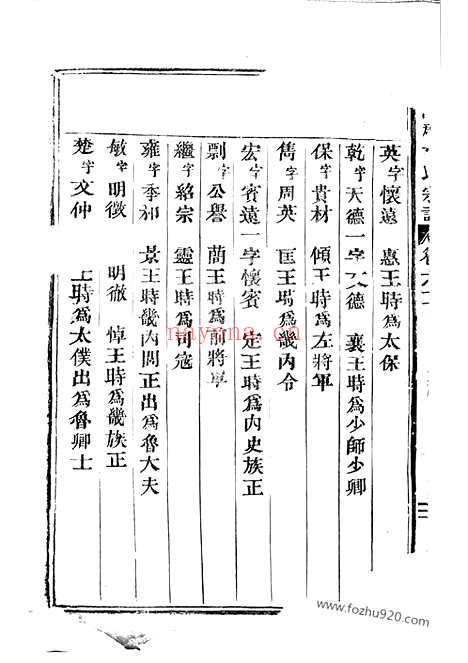 氏宗譜
英字懷遠 惠王時爲太保
乾字天德一字文德 襄王時爲少師少卿
保字貴材 傾王時爲左將軍
雋字周英 匡王時爲畿內令
宏字賓遠一字懷賓 定王時爲內史族正
剽字公譽 簡王時爲前將軍
繼字紹宗 靈王時爲司寇
雍字季和 景王時畿內閭正出爲魯大夫
敏字明徵 明徹 悼王時爲畿族正
楚字文仲 王時爲太僕出爲魯卿士
nayona.cn
www.fozhu920.com